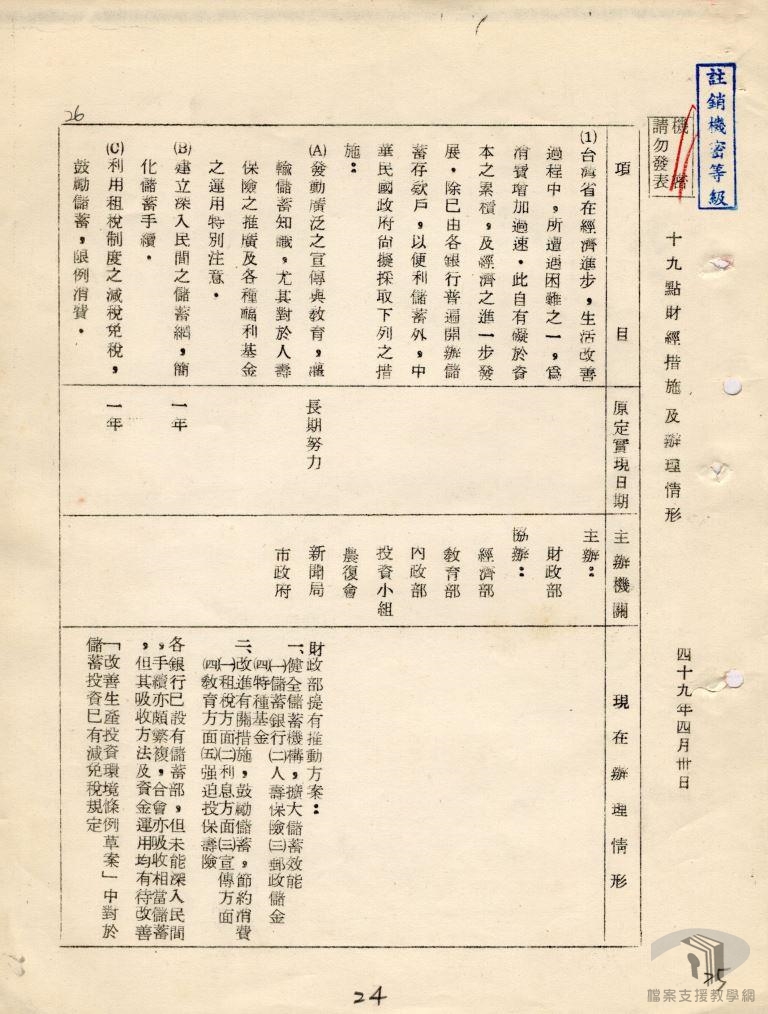 註銷機密等級
機密
請勿發表
十九點財經措施及辦理情形
四十九年四月卅日
項目
原定實現日期
主辦機關
現在辦理情形
(1)台灣省在經濟進步，生活改善
過程中，所遭遇困難之一，為
消費增加過速。此自有礙於資
本之累積，及經濟之進一步發
展，除已由各銀行普遍開辦儲
蓄存款戶，以便利儲蓄外，中
華民國政府尚擬採取下列之措
施：
(A)發動廣泛之宣傳與教育，灌
輸儲蓄知識，尤其對於人壽
保險之推廣及各種福利基金
之運用特別注意。
(B)建立深入民間之儲蓄網，簡
化儲蓄手續。
(C)利用租稅制度之減稅免稅，
鼓勵儲蓄，限例消費。
長期努力
一年
一年
主辦：
財政部
協辦：
經濟部
教育部
內政部
投資小組
農復會
新聞局
市政府
財政部提有推動方案：
一、健全儲蓄機構，擴大儲蓄效能
㈠儲蓄銀行㈡人壽保險㈢郵政儲金
㈣特種基金
二、改進有關措施，鼓勵儲蓄，節約消費
㈠租稅方面㈡利息方面㈢宣傳方面
㈣教育方面㈤强迫投保壽險
各銀行已設有儲蓄部，但未能深入民間
，手續亦頗繁複，合會亦吸收相當儲蓄
，但其吸收方法及資金運用均有待改善
「改善生產投資環境條例草案」中對於
儲蓄投資已有減免稅規定
26
24
25
檔案支援教學網